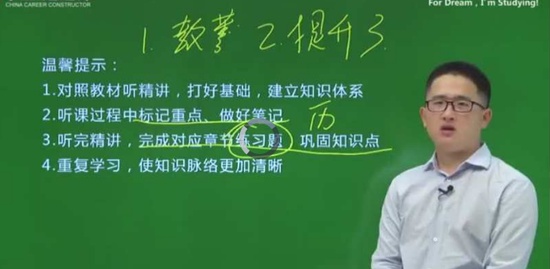 CHINA CAREER CONSTRUCTOR
For Dream , I'm Studying!
1. 教学 2. 提升 3.
温馨提示：
1.对照教材听精讲，打好基础，建立知识体系
2.听课过程中标记重点、做好笔记
历
3.听完精讲，完成对应章节练习题 巩固知识点
4.重复学习，使知识脉络更加清晰